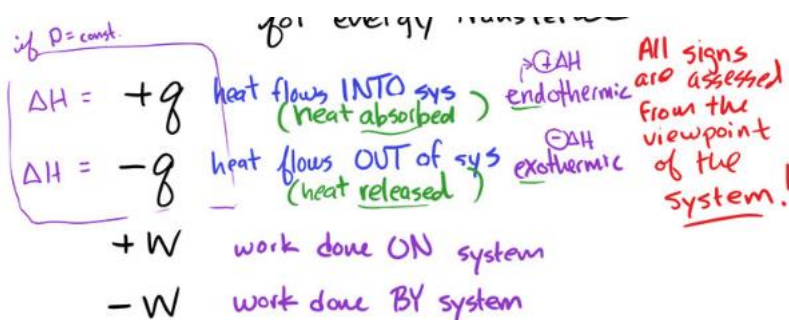 for energy transfer
if P = const.
ΔH = +q heat flows INTO sys
(heat absorbed)
→⊕ΔH
endothermic
ΔH = -q heat flows OUT of sys
(heat released)
⊖ΔH
exothermic
+W work done ON system
-W work done BY system
All signs
are assessed
from the
viewpoint
of the
system!